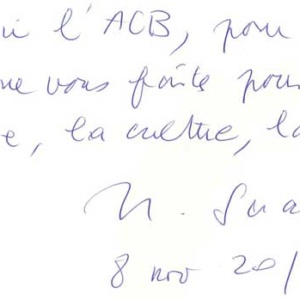 l'ACB, pour
vous faite pour
, la culture, la
8 nov 20